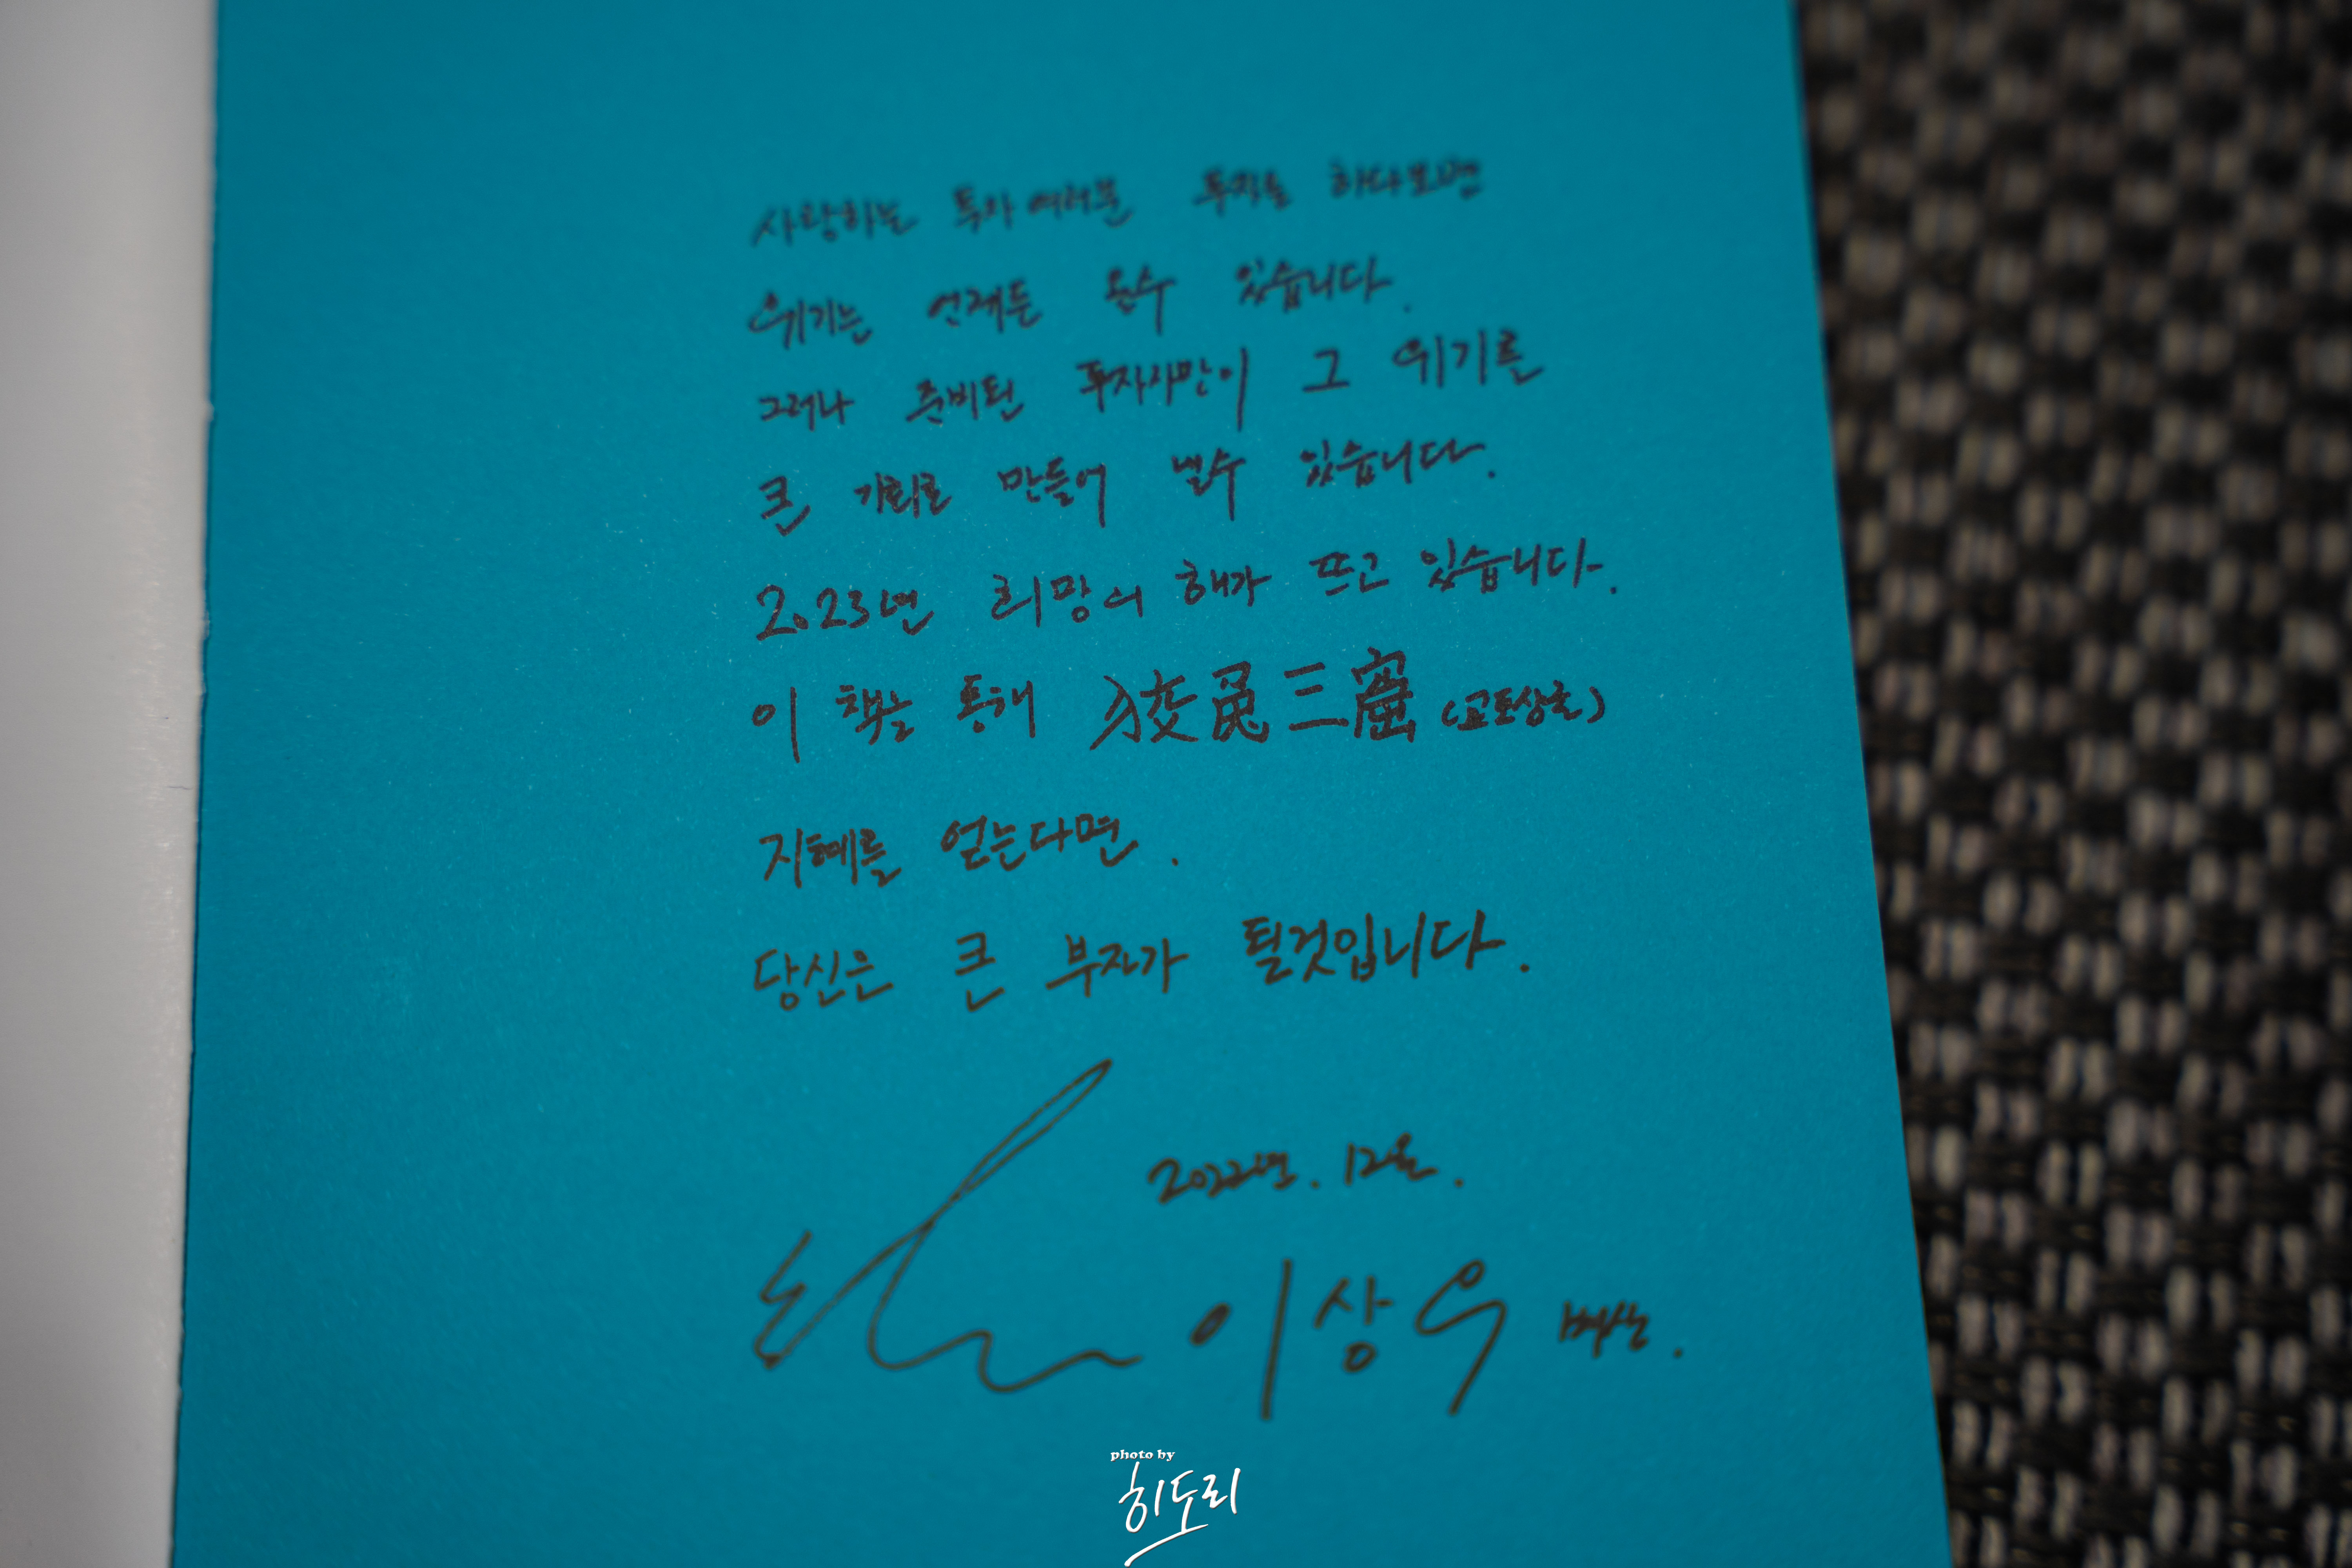 사랑하는 투자 여러분 투자를 하다보면
위기는 언제든 올수 있습니다.
그러나 준비된 투자자만이 그 위기를
큰 기회로 만들어 낼수 있습니다.
2023년 희망의 해가 뜨고 있습니다.
이 책을 통해 狡兎三窟 (교토삼굴)
지혜를 얻는다면.
당신은 큰 부자가 될것입니다.
2022년. 12월.
이상우
photo by
히도리